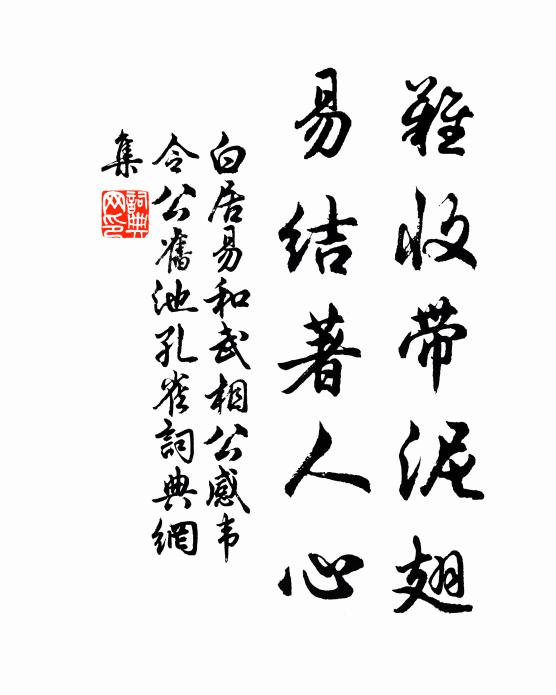 難收帶泥翅
易结著人心
白居易和武相公感韦
令公舊池孔雀詞典網
集
詞典
网印